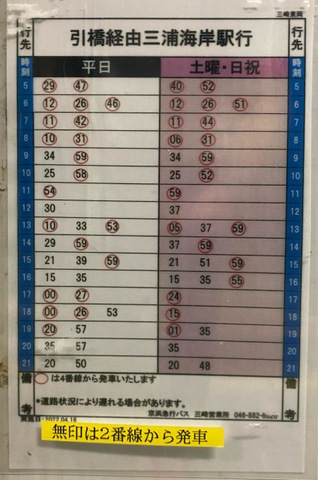 三崎営業所
行先 引橋経由三浦海岸駅行 行先
時刻 平日 土曜・日祝 時刻
5 29 47 40 52 5
6 12 26 46 12 26 51 6
7 11 42 11 44 7
8 10 31 06 31 8
9 34 59 34 59 9
10 25 58 25 52 10
11 54 59 11
12 30 37 12
13 10 33 53 05 37 59 13
14 29 59 37 59 14
15 21 39 59 21 51 59 15
16 15 35 15 35 55 16
17 00 27 24 17
18 00 26 53 15 18
19 20 57 01 35 19
20 35 57 35 20
21 20 50 20 48 21
備考 ○は4番線から発車いたします 備考
*道路状況により遅れる場合があります。
京浜急行バス 三崎営業所 046-882-6020
実施日：2022.04.16
無印は2番線から発車